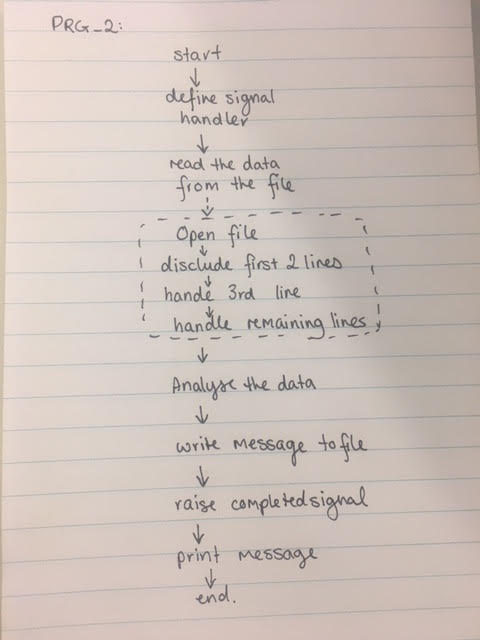 PRG_2:
start
define signal
handler
read the data
from the file
Open file
disclude first 2 lines
hande 3rd line
handle remaining lines
Analyse the data
write message to file
raise completed signal
print message
end.